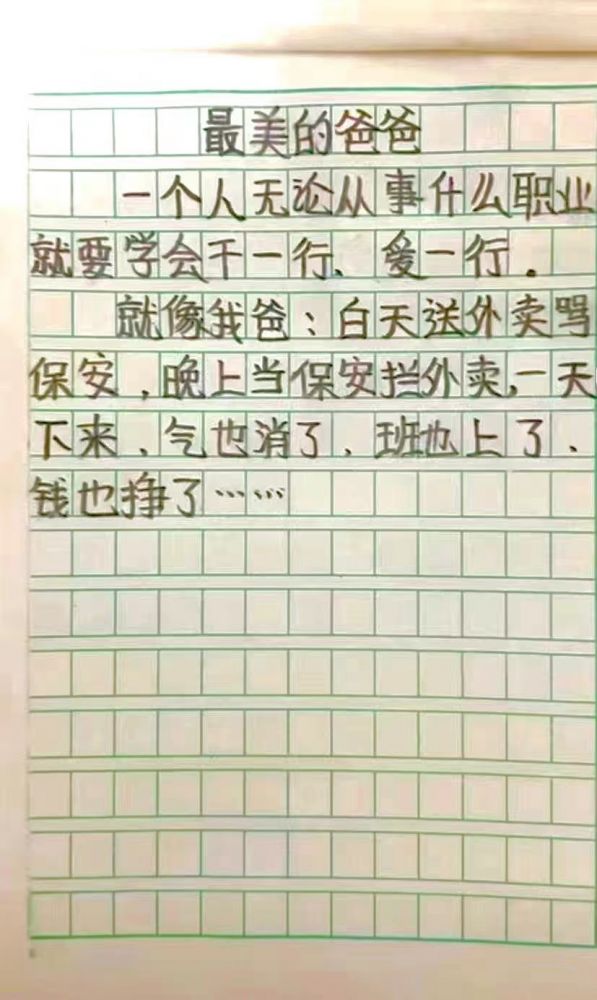 最美的爸爸
一个人无论从事什么职业
就要学会干一行、爱一行.
就像我爸:白天送外卖骂
保安,晚上当保安拦外卖,一天
下来,气也消了,班也上了.
钱也挣了……